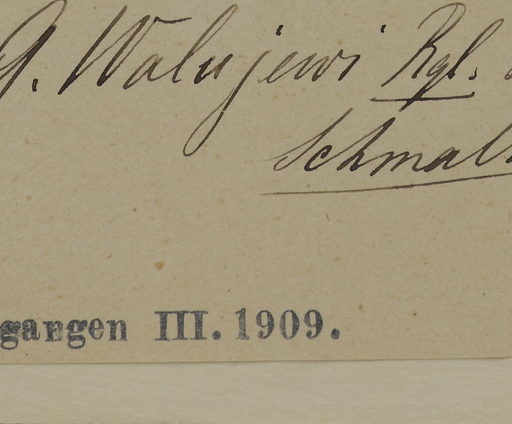 A. Walujewi Rgl.
Schmalh
gangen III. 1909.